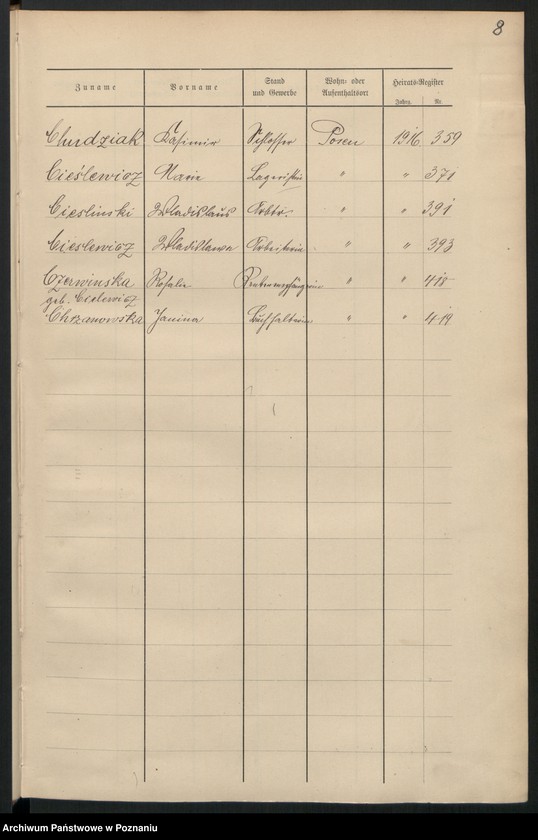 8
Zuname Vorname Stand und Gewerbe Wohn- oder Aufenthaltsort Heirats-Register
Jahrg. Nr.
Chudziak Kasimir Schlosser Posen 1916 359
Cieślewicz Maria Lageristin " " 371
Cieslinski Wladislaus " " 391
Cieslewicz Wladislawa Arbeiterin " " 393
Czerwinska Rosalie Rentenempfängerin " " 418
geb. Cielewicz
Chrzanowska Janina Buchhalterin " " 419
Archiwum Państwowe w Poznaniu